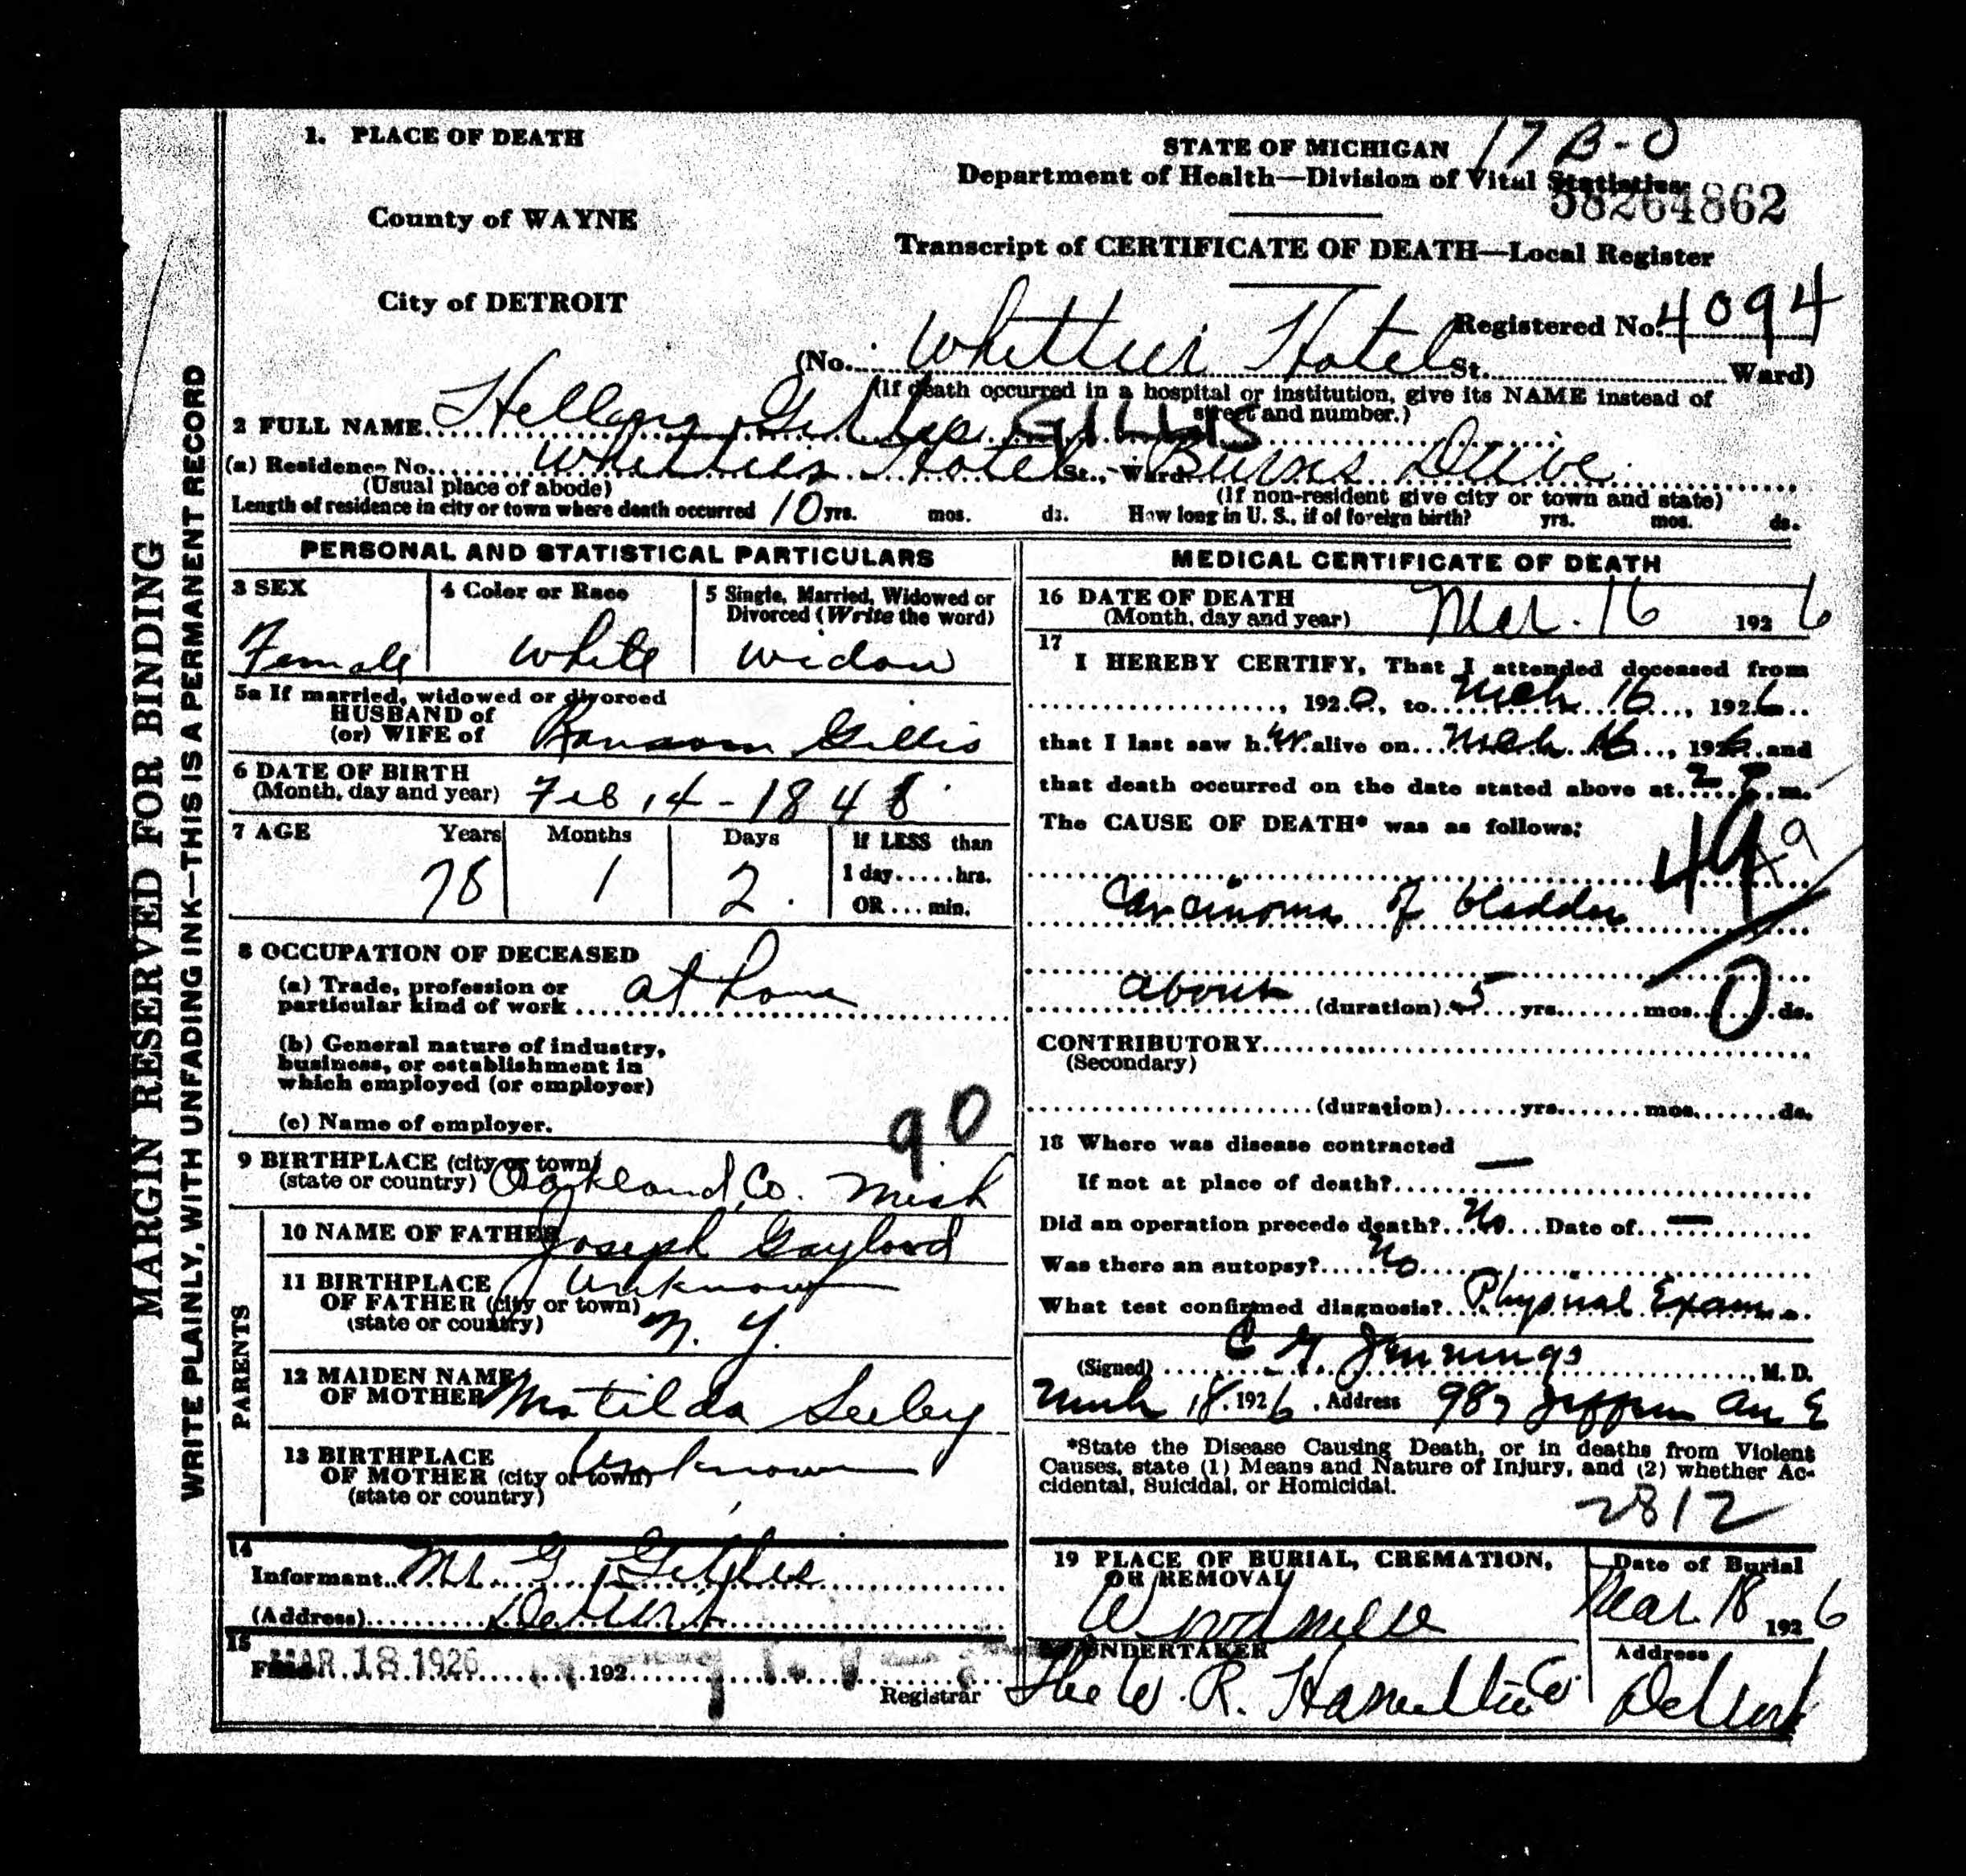 1. PLACE OF DEATH
County of WAYNE
City of DETROIT
STATE OF MICHIGAN 17 B-0
Department of Health—Division of Vital Statistics
58264862
Transcript of CERTIFICATE OF DEATH—Local Register
Registered No. 4094
(No. Whittier Hotel St. Ward)
(If death occurred in a hospital or institution, give its NAME instead of
street and number.)
2 FULL NAME Gillis GILLIS
(a) Residence No. Whittier Hotel St., Ward. Burns Drive
(Usual place of abode)
(If non-resident give city or town and state)
Length of residence in city or town where death occurred 10 yrs. mos. ds. How long in U. S., if of foreign birth? yrs. mos. ds.
MARGIN RESERVED FOR BINDING
WRITE PLAINLY, WITH UNFADING INK—THIS IS A PERMANENT RECORD
PERSONAL AND STATISTICAL PARTICULARS
3 SEX
Female
4 Color or Race
White
5 Single, Married, Widowed or
Divorced (Write the word)
widow
5a If married, widowed or divorced
HUSBAND of
(or) WIFE of Ransom Gillis
6 DATE OF BIRTH
(Month, day and year) Feb 14 - 1848
7 AGE Years Months Days If LESS than
1 day......hrs.
OR...min.
78 1 2
8 OCCUPATION OF DECEASED
(a) Trade, profession or
particular kind of work at home
(b) General nature of industry,
business, or establishment in
which employed (or employer)
(c) Name of employer. 90
9 BIRTHPLACE (city or town)
(state or country) Oakland Co. Mich
PARENTS
10 NAME OF FATHER Joseph Gaylord
11 BIRTHPLACE
OF FATHER (city or town) Unknown
(state or country) N. Y.
12 MAIDEN NAME
OF MOTHER Matilda Seeley
13 BIRTHPLACE
OF MOTHER (city or town) Unknown
(state or country)
14
Informant G Gillis
(Address) Detroit
15
Filed MAR 18 1926 192
Registrar
MEDICAL CERTIFICATE OF DEATH
16 DATE OF DEATH
(Month, day and year) Mar. 16 1926
17
I HEREBY CERTIFY, That I attended deceased from
, 1920, to Mch 16, 1926
that I last saw her alive on Mch 16, 1926 and
that death occurred on the date stated above at 2 P. m.
The CAUSE OF DEATH* was as follows:
49
Carcinoma of bladder
about (duration) 5 yrs. mos. 0 ds.
CONTRIBUTORY
(Secondary)
(duration) yrs. mos. ds.
18 Where was disease contracted
If not at place of death? —
Did an operation precede death? No Date of —
Was there an autopsy? No
What test confirmed diagnosis? Physical Exam.
(Signed) C G Jennings, M. D.
March 18, 1926, Address 987 Jefferson Av E
*State the Disease Causing Death, or in deaths from Violent
Causes, state (1) Means and Nature of Injury, and (2) whether Ac-
cidental, Suicidal, or Homicidal.
2812
19 PLACE OF BURIAL, CREMATION,
OR REMOVAL
Woodmere
Date of Burial
Mar 18 1926
UNDERTAKER
The W. R. Hamilton Co.
Address
Detroit